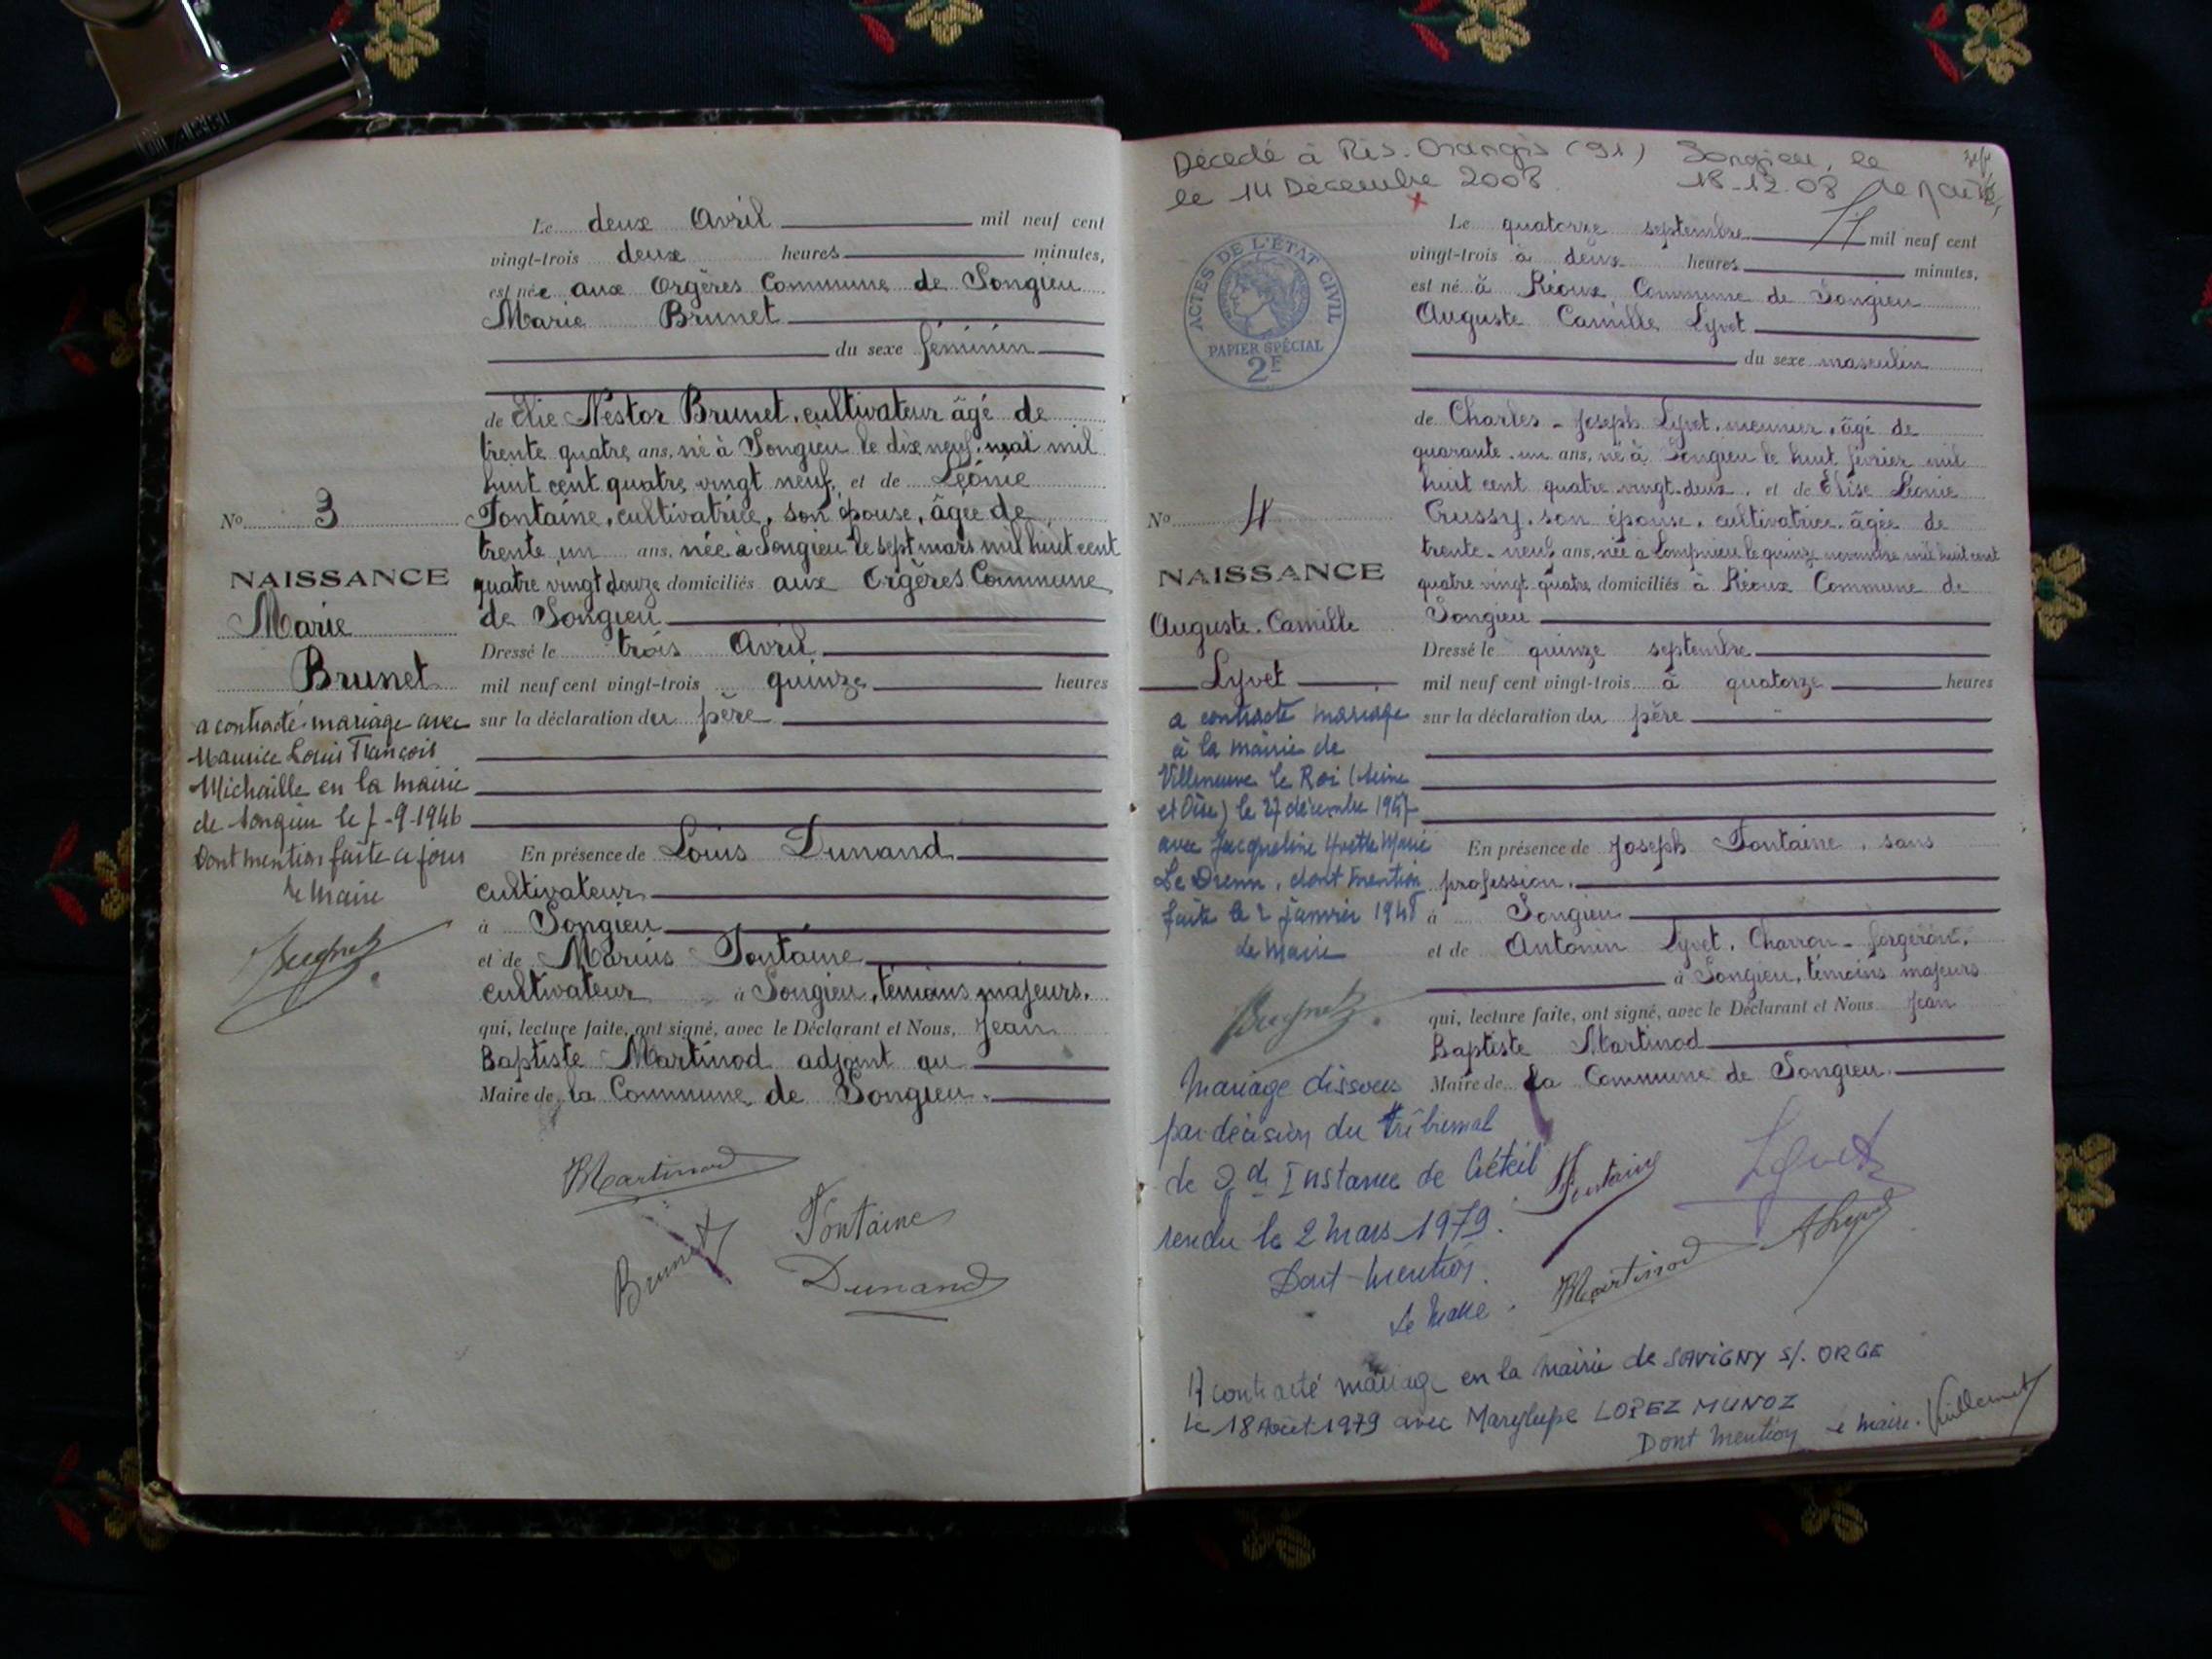 Le deux Avril mil neuf cent
vingt-trois deux heures minutes,
est née aux Orgères Commune de Songieu
Marie Brunet
du sexe féminin
de Elie Nestor Brunet, cultivateur âgé de
trente quatre ans, né à Songieu le dix neuf mai mil
huit cent quatre vingt neuf, et de Léonie
Fontaine, cultivatrice, son épouse, âgée de
trente un ans, née à Songieu le sept mars mil huit cent
quatre vingt douze domiciliés aux Orgères Commune
de Songieu
Dressé le trois Avril
mil neuf cent vingt-trois quinze heures
sur la déclaration du père
En présence de Louis Dunand
cultivateur
à Songieu
et de Marius Fontaine
cultivateur à Songieu, témoins majeurs.
qui, lecture faite, ont signé, avec le Déclarant et Nous, Jean
Baptiste Martinod adjoint au
Maire de la Commune de Songieu.
No 3
NAISSANCE
Marie
Brunet
a contracté mariage avec
Maurice Louis François
Michaille en la mairie
de Songieu le 7-9-1946
Dont mention faite ce jour
le Maire
Martinod
Brunet
Fontaine
Dunand
Décédé à Ris-Orangis (91) Songieu, le
le 14 Décembre 2008 18-12-08
ACTES DE L'ÉTAT CIVIL
PAPIER SPÉCIAL
2F
Le quatorze septembre mil neuf cent
vingt-trois à deux heures minutes,
est né à Réoux Commune de Songieu
Auguste Camille Lyvet
du sexe masculin
de Charles-Joseph Lyvet, meunier, âgé de
quarante-un ans, né à Songieu le huit février mil
huit cent quatre-vingt-deux, et de Elise Léonie
Crussy, son épouse, cultivatrice, âgée de
trente-neuf ans, née à Lompnieu le quinze novembre mil huit cent
quatre vingt-quatre domiciliés à Réoux Commune de
Songieu
Dressé le quinze septembre
mil neuf cent vingt-trois à quatorze heures
sur la déclaration du père
En présence de Joseph Fontaine, sans
profession,
à Songieu
et de Antonin Lyvet, Charron-forgeron,
à Songieu, témoins majeurs
qui, lecture faite, ont signé, avec le Déclarant et Nous Jean
Baptiste Martinod
Maire de la Commune de Songieu.
No 4
NAISSANCE
Auguste-Camille
Lyvet
a contracté mariage
à la mairie de
Villeneuve le Roi (Seine
et Oise) le 27 décembre 1947
avec Jacqueline Yvette Marie
Le Drenn, dont mention
faite le 2 janvier 1948
le Maire
Mariage dissous
par décision du tribunal
de Gde Instance de Créteil
rendu le 2 mars 1979.
Dont mention.
Le Maire.
Fontaine
Lyvet
Martinod
A Lyvet
A contracté mariage en la mairie de SAVIGNY S/. ORGE
le 18 Août 1979 avec Marylupe LOPEZ MUNOZ
Dont mention le maire. Vuillermet